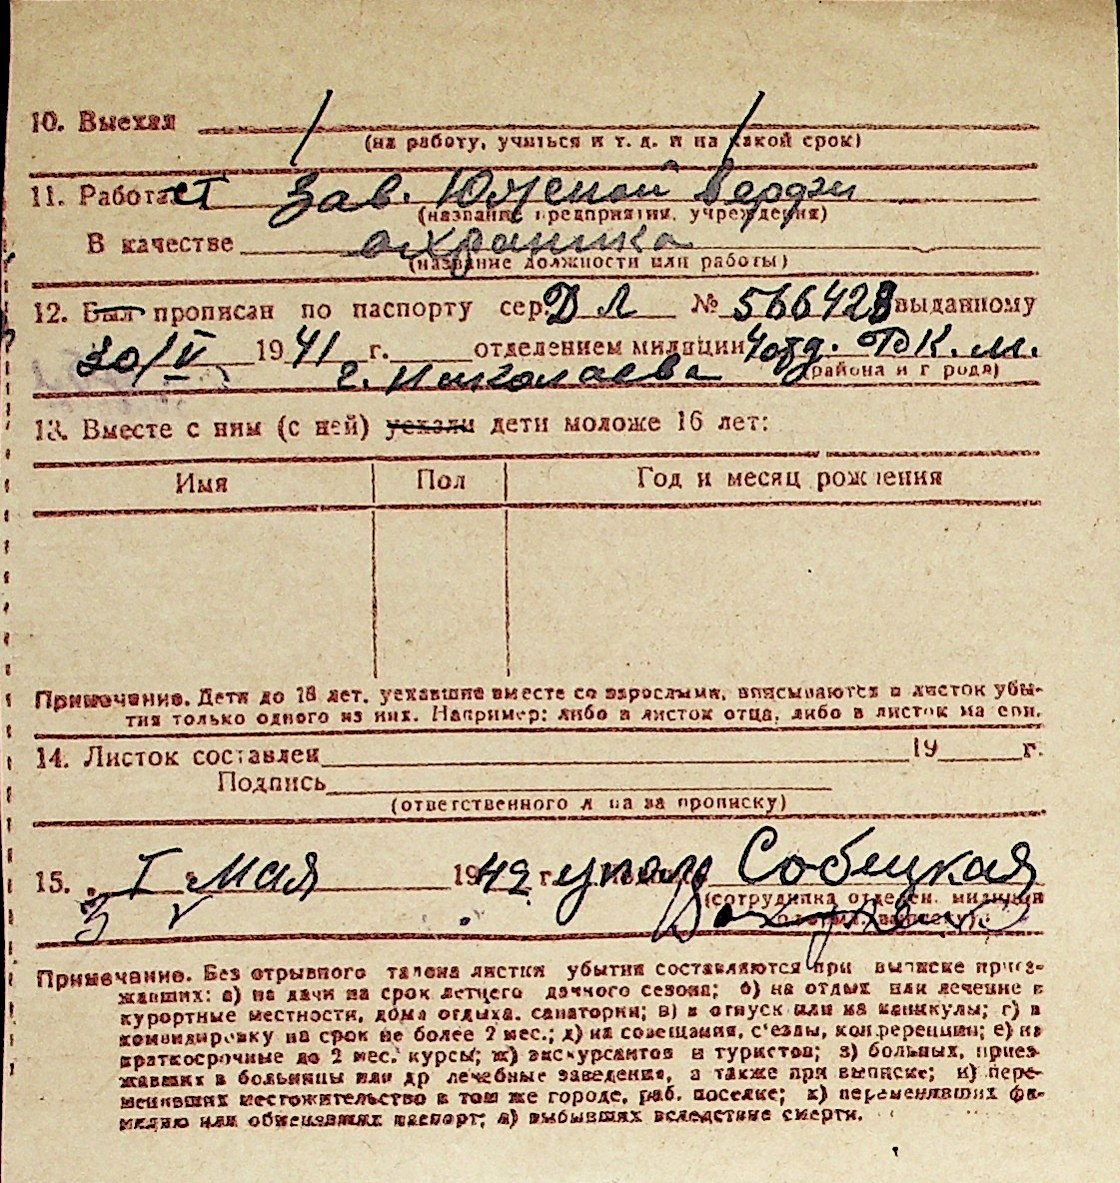 10. Выехал
(на работу, учиться и т. д. и на какой срок)
11. Работает Зав. Южной верфи
(название предприятия, учреждения)
В качестве охраника
(название должности или работы)
12. Был прописан по паспорту сер. ДЛ № 566423 выданному
30/V 1941 г. отделением милиции 4 отд. РК.М.
г. Николаева (района и города)
13. Вместе с ним (с ней) уехали дети моложе 16 лет:
Имя Пол Год и месяц рождения
Примечание. Дети до 16 лет, уехавшие вместе со взрослыми, вписываются в листок убы-
тия только одного из них. Например: либо в листок отца, либо в листок матери.
14. Листок составлен 19 г.
Подпись
(ответственного лица за прописку)
15. I мая 1942 г. Собецкая
(сотрудника отделен. милиции
3 V
Примечание. Без отрывного талона листки убытия составляются при выписке приез-
жавших: а) на дачи на срок летнего дачного сезона; б) на отдых или лечение в
курортные местности, дома отдыха, санатории; в) в отпуск или на каникулы; г) в
командировку на срок не более 2 мес.; д) на совещания, с'езды, конференции; е) на
краткосрочные до 2 мес. курсы; ж) экскурсантов и туристов; з) больных, приез-
жавших в больницы или др лечебные заведения, а также при выписке; и) пере-
менивших местожительство в том же городе, раб. поселке; к) переменивших фа-
милию или обменявших паспорт; л) выбывших вследствие смерти.